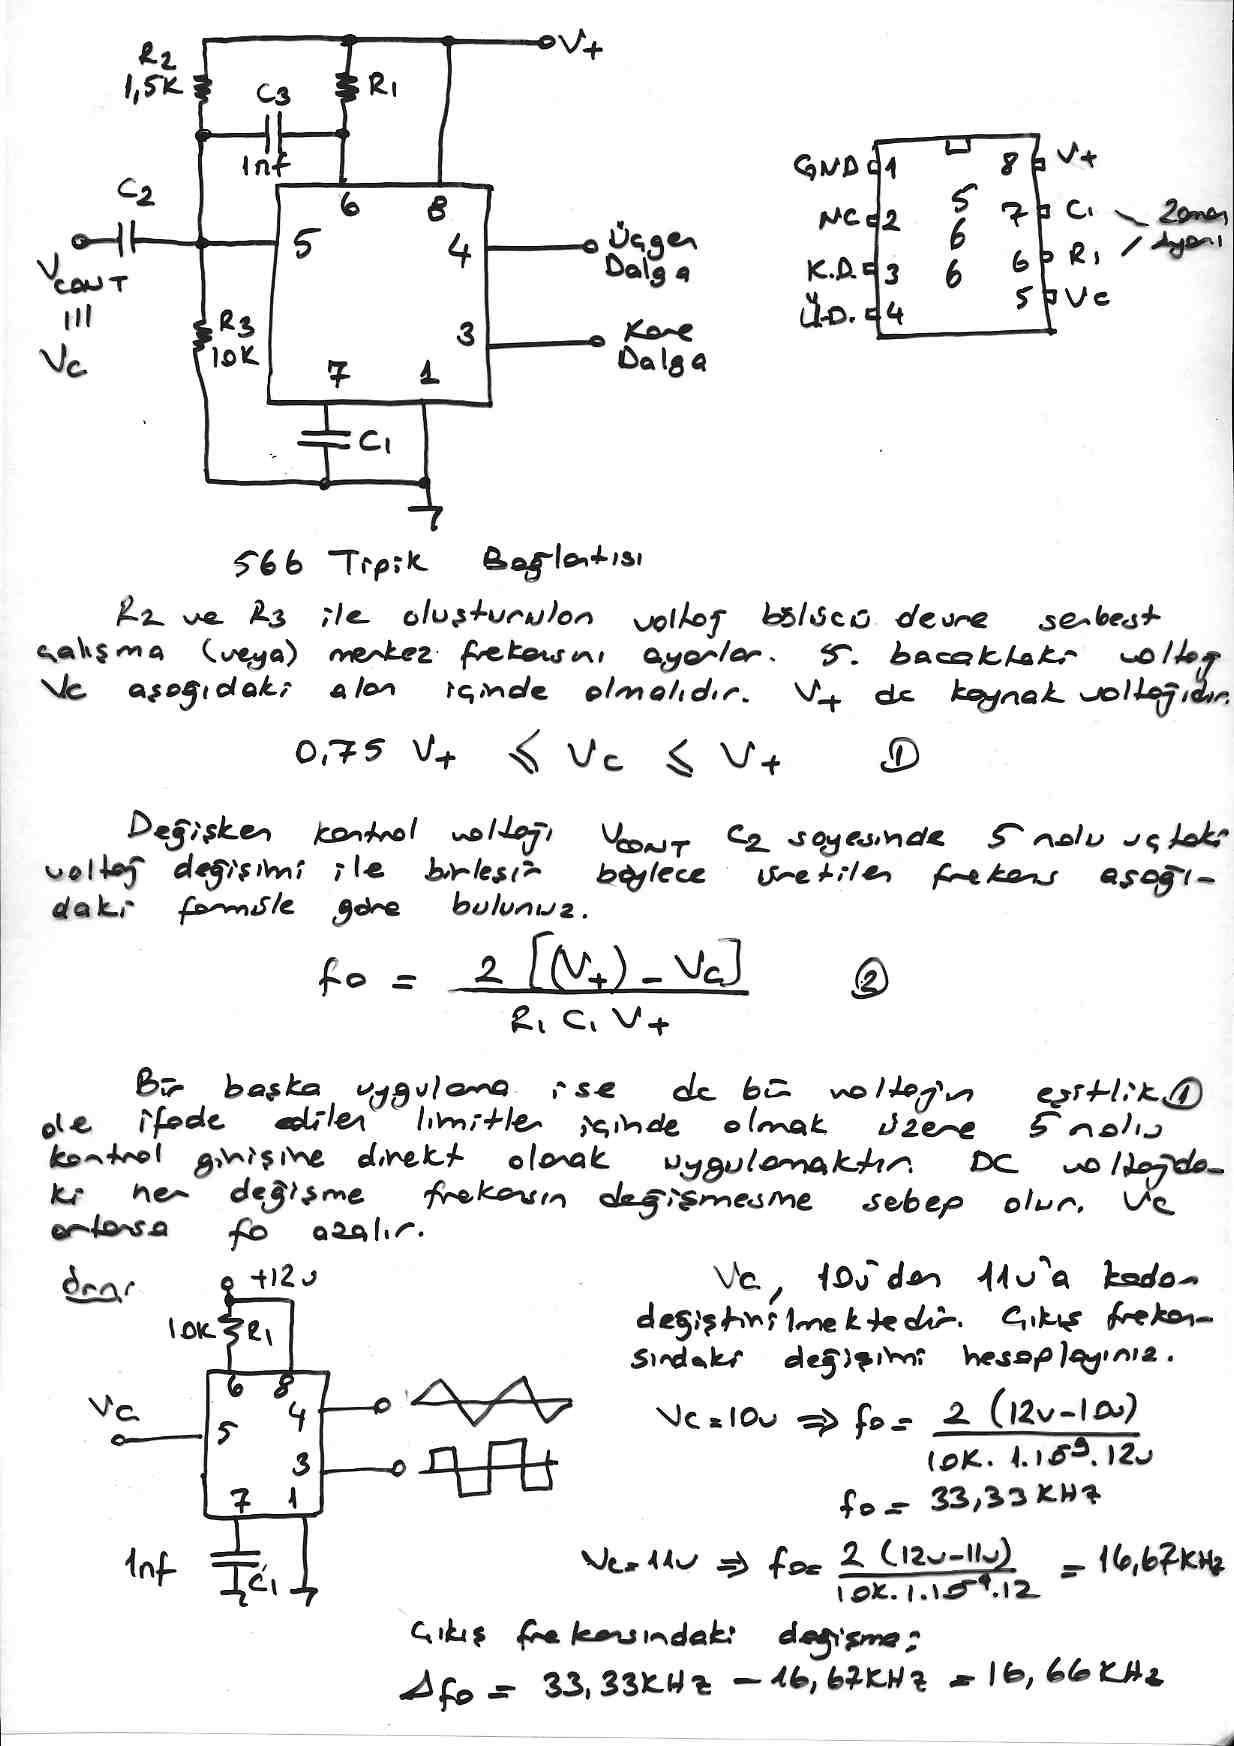 R2
1,5K
C3
1nf
R1
V+
C2
VCONT
|||
VC
R3
10K
5
6
8
4
3
7
1
C1
Üçgen
Dalga
Kare
Dalga
GND 1
NC 2
K.D. 3
Ü.D. 4
566
8 V+
7 C1
6 R1
5 VC
566 Tipik Bağlantısı
R2 ve R3 ile oluşturulan voltaj bölücü devre serbest
çalışma (veya) merkez frekansını ayarlar. 5. bacaktaki voltaj
Vc aşağıdaki alan içinde olmalıdır. V+ dc kaynak voltajıdır.
0,75 V+ ⩽ VC ⩽ V+ ①
Değişken kontrol voltajı VCONT C2 sayesinde 5 nolu uçtaki
voltaj değişimi ile birleşir böylece üretilen frekans aşağı-
daki formüle göre bulunuz.
fo = 2 [(V+) - VC] / R1 C1 V+ ②
Bir başka uygulama ise dc bir voltajın eşitlik ①
de ifade edilen limitler içinde olmak üzere 5 nolu
kontrol girişine direkt olarak uygulamaktır. DC voltajda-
ki her değişme frekansın değişmesine sebep olur. Vc
artarsa fo azalır.
örnr
+12v
10K R1
VC
6 8
5 4
3
7 1
1nf
C1
Vc, 10v'den 11v'a kadar
değiştirilmektedir. Çıkış frekan-
sındaki değişimi hesaplayınız.
Vc=10v ⇒ fo = 2 (12v-10v) / 10K. 1.10⁻⁹.12v
fo = 33,33KHz
Vc=11v ⇒ fo= 2 (12v-11v) / 10K.1.10⁻⁹.12 = 16,67KHz
Çıkış frekansındaki değişme;
Δfo = 33,33KHz - 16,67KHz = 16,66KHz